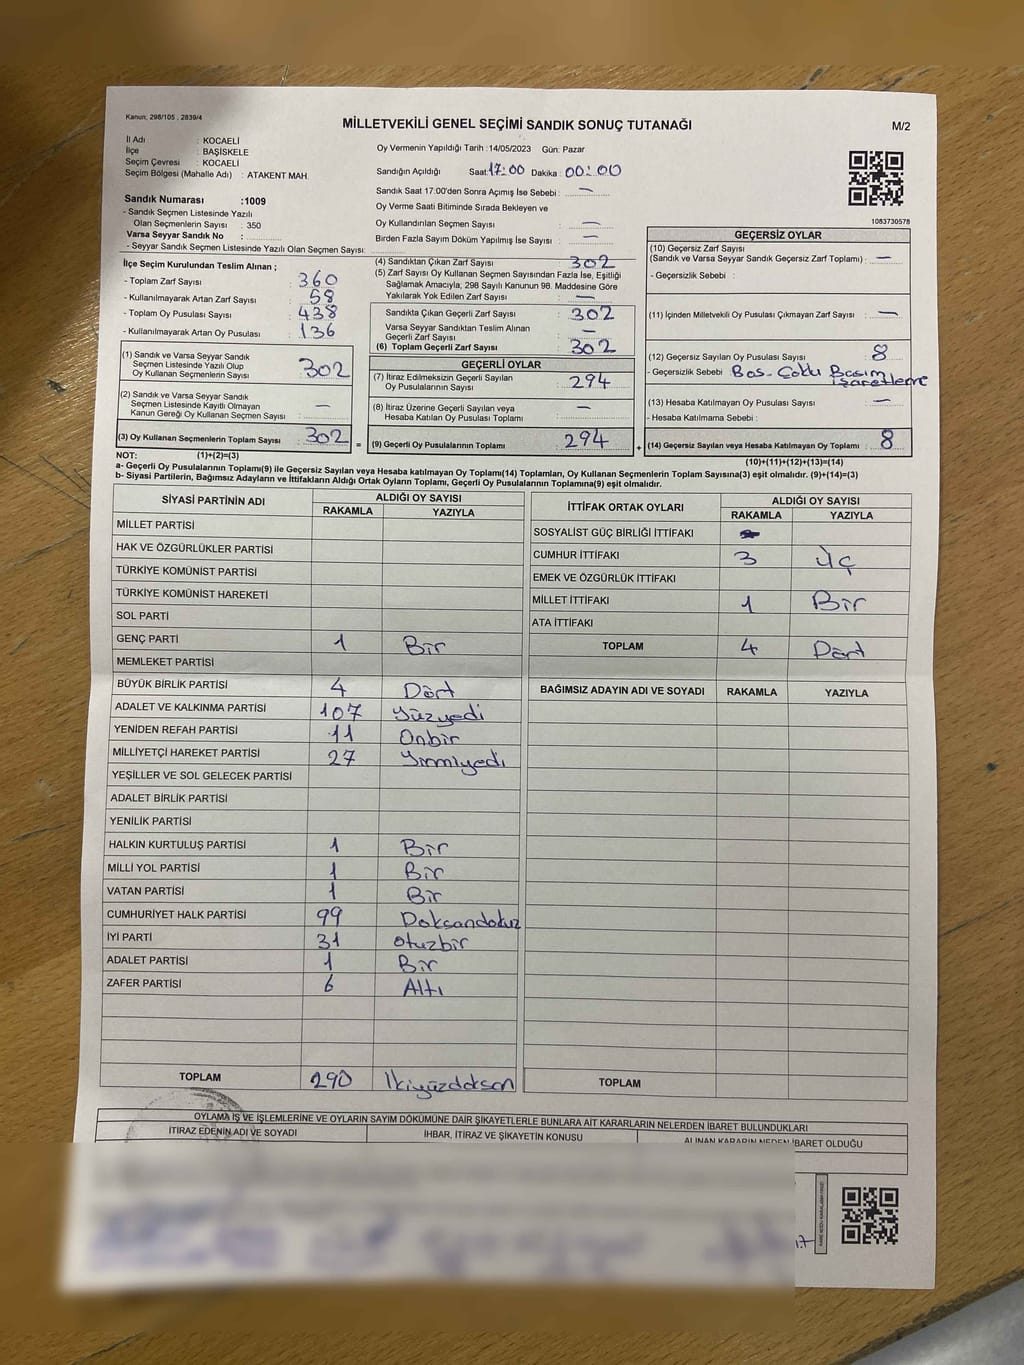 Kanun; 298/105 , 2839/4
MİLLETVEKİLİ GENEL SEÇİMİ SANDIK SONUÇ TUTANAĞI
M/2
İl Adı : KOCAELİ
İlçe : BAŞİSKELE
Seçim Çevresi : KOCAELİ
Seçim Bölgesi (Mahalle Adı) : ATAKENT MAH.
Sandık Numarası :1009
- Sandık Seçmen Listesinde Yazılı
Olan Seçmenlerin Sayısı : 350
Varsa Seyyar Sandık No :
- Seyyar Sandık Seçmen Listesinde Yazılı Olan Seçmen Sayısı:
Oy Vermenin Yapıldığı Tarih :14/05/2023 Gün: Pazar
Sandığın Açıldığı Saat: 17:00 Dakika : 00:00
Sandık Saat 17:00'den Sonra Açımış İse Sebebi : —
Oy Verme Saati Bitiminde Sırada Bekleyen ve
Oy Kullandırılan Seçmen Sayısı : —
Birden Fazla Sayım Döküm Yapılmış İse Sayısı : —
1083730578
İlçe Seçim Kurulundan Teslim Alınan ;
- Toplam Zarf Sayısı : 360
- Kullanılmayarak Artan Zarf Sayısı : 58
- Toplam Oy Pusulası Sayısı : 438
- Kullanılmayarak Artan Oy Pusulası : 136
(1) Sandık ve Varsa Seyyar Sandık
Seçmen Listesinde Yazılı Olup
Oy Kullanan Seçmenlerin Sayısı : 302
(2) Sandık ve Varsa Seyyar Sandık
Seçmen Listesinde Kayıtlı Olmayan
Kanun Gereği Oy Kullanan Seçmen Sayısı : —
(3) Oy Kullanan Seçmenlerin Toplam Sayısı : 302
(4) Sandıktan Çıkan Zarf Sayısı : 302
(5) Zarf Sayısı Oy Kullanan Seçmen Sayısından Fazla İse, Eşitliği
Sağlamak Amacıyla; 298 Sayılı Kanunun 98. Maddesine Göre
Yakılarak Yok Edilen Zarf Sayısı : —
Sandıkta Çıkan Geçerli Zarf Sayısı : 302
Varsa Seyyar Sandıktan Teslim Alınan
Geçerli Zarf Sayısı : —
(6) Toplam Geçerli Zarf Sayısı : 302
GEÇERLİ OYLAR
(7) İtiraz Edilmeksizin Geçerli Sayılan
Oy Pusulalarının Sayısı : 294
(8) İtiraz Üzerine Geçerli Sayılan veya
Hesaba Katılan Oy Pusulası Toplamı : —
= (9) Geçerli Oy Pusulalarının Toplamı : 294 +
GEÇERSİZ OYLAR
(10) Geçersiz Zarf Sayısı
(Sandık ve Varsa Seyyar Sandık Geçersiz Zarf Toplamı) : —
- Geçersizlik Sebebi :
(11) İçinden Milletvekili Oy Pusulası Çıkmayan Zarf Sayısı : —
(12) Geçersiz Sayılan Oy Pusulası Sayısı : 8
- Geçersizlik Sebebi : Bos-Çoklu Basım
işaretleme
(13) Hesaba Katılmayan Oy Pusulası Sayısı : —
- Hesaba Katılmama Sebebi :
(14) Geçersiz Sayılan veya Hesaba Katılmayan Oy Toplamı : 8
NOT: (1)+(2)=(3)
(10)+(11)+(12)+(13)=(14)
a- Geçerli Oy Pusulalarının Toplamı(9) ile Geçersiz Sayılan veya Hesaba katılmayan Oy Toplamı(14) Toplamları, Oy Kullanan Seçmenlerin Toplam Sayısına(3) eşit olmalıdır. (9)+(14)=(3)
b- Siyasi Partilerin, Bağımsız Adayların ve İttifakların Aldığı Ortak Oyların Toplamı, Geçerli Oy Pusulalarının Toplamına(9) eşit olmalıdır.
SİYASİ PARTİNİN ADI ALDIĞI OY SAYISI
RAKAMLA YAZIYLA
MİLLET PARTİSİ
HAK VE ÖZGÜRLÜKLER PARTİSİ
TÜRKİYE KOMÜNİST PARTİSİ
TÜRKİYE KOMÜNİST HAREKETİ
SOL PARTİ
GENÇ PARTİ 1 Bir
MEMLEKET PARTİSİ
BÜYÜK BİRLİK PARTİSİ 4 Dört
ADALET VE KALKINMA PARTİSİ 107 Yüzyedi
YENİDEN REFAH PARTİSİ 11 Onbir
MİLLİYETÇİ HAREKET PARTİSİ 27 Yirmiyedi
YEŞİLLER VE SOL GELECEK PARTİSİ
ADALET BİRLİK PARTİSİ
YENİLİK PARTİSİ
HALKIN KURTULUŞ PARTİSİ 1 Bir
MİLLİ YOL PARTİSİ 1 Bir
VATAN PARTİSİ 1 Bir
CUMHURİYET HALK PARTİSİ 99 Doksandokuz
İYİ PARTİ 31 otuzbir
ADALET PARTİSİ 1 Bir
ZAFER PARTİSİ 6 Altı
TOPLAM 290 İkiyüzdoksan
İTTİFAK ORTAK OYLARI ALDIĞI OY SAYISI
RAKAMLA YAZIYLA
SOSYALİST GÜÇ BİRLİĞİ İTTİFAKI
CUMHUR İTTİFAKI 3 Üç
EMEK VE ÖZGÜRLÜK İTTİFAKI
MİLLET İTTİFAKI 1 Bir
ATA İTTİFAKI
TOPLAM 4 Dört
BAĞIMSIZ ADAYIN ADI VE SOYADI RAKAMLA YAZIYLA
TOPLAM
OYLAMA İŞ VE İŞLEMLERİNE VE OYLARIN SAYIM DÖKÜMÜNE DAİR ŞİKAYETLERLE BUNLARA AİT KARARLARIN NELERDEN İBARET BULUNDUKLARI
İTİRAZ EDENİN ADI VE SOYADI İHBAR, İTİRAZ VE ŞİKAYETİN KONUSU ALINAN KARARIN NEDEN İBARET OLDUĞU